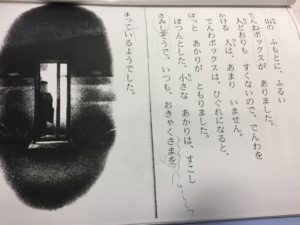 山の ふもとに、ふるい
でんわボックスが ありました。
人どおりも すくないので、でんわを
かける 人は、あまり いません。
でんわボックスは、ひぐれになると、
ぽっと あかりが ともりました。
ぽつんとした、小さな あかりは、すこし
さみしそうで、いつも、おきゃくさまを
まっているようでした。